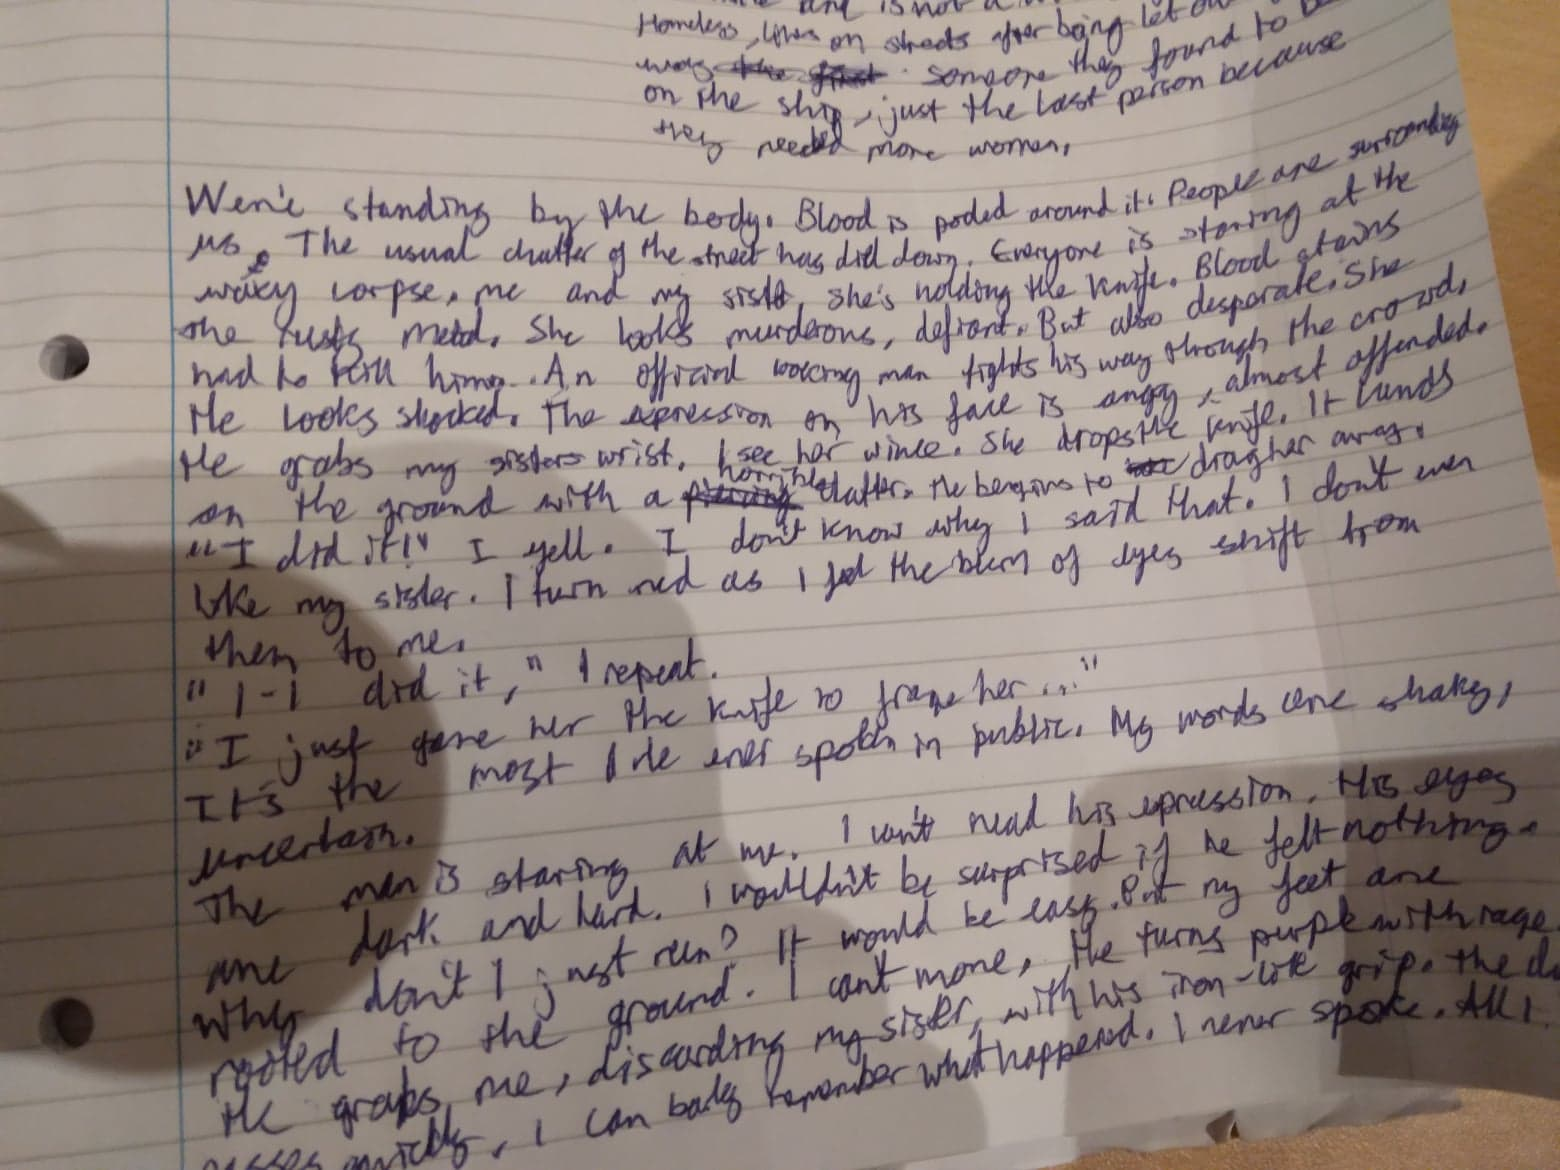 and is not a
Homeless, lives on streets after being let
was the first someone they found to
on the ship, just the last person because
they needed more women,
We're standing by the body. Blood is pooled around it. People are surrounding
us. The usual chatter of the street has died down. Everyone is staring at the
waxy corpse, me and my sister, she's holding the knife. Blood stains
the rusty metal. She looks murderous, defiant. But also desperate. She
had to kill him. An official looking man fights his way through the crowd,
He looks shocked. The expression on his face is angry, almost offended.
He grabs my sisters wrist. I see her wince. She drops the knife. It lands
on the ground with a piercing horrible clatter. He begins to drag her away.
"I did it!" I yell. I don't know why I said that. I don't even
like my sister. I turn red as I feel the of eyes shift from
them to me.
"I-I did it," I repeat.
"I just gave her the knife to frame her..."
It's the most I've ever spoken in public. My words are shaky,
uncertain.
The man is staring at me. I can't read his epression. His eyes
are dark and hard. I wouldn't be surprised if he felt nothing.
Why don't I just run? It would be easy. But my feet are
rooted to the ground. I can't move, He turns purple with rage.
He grabs me, discarding my sister, with his iron-like grip. The
passes quickly, I can barely remember what happened. I never spoke. All I